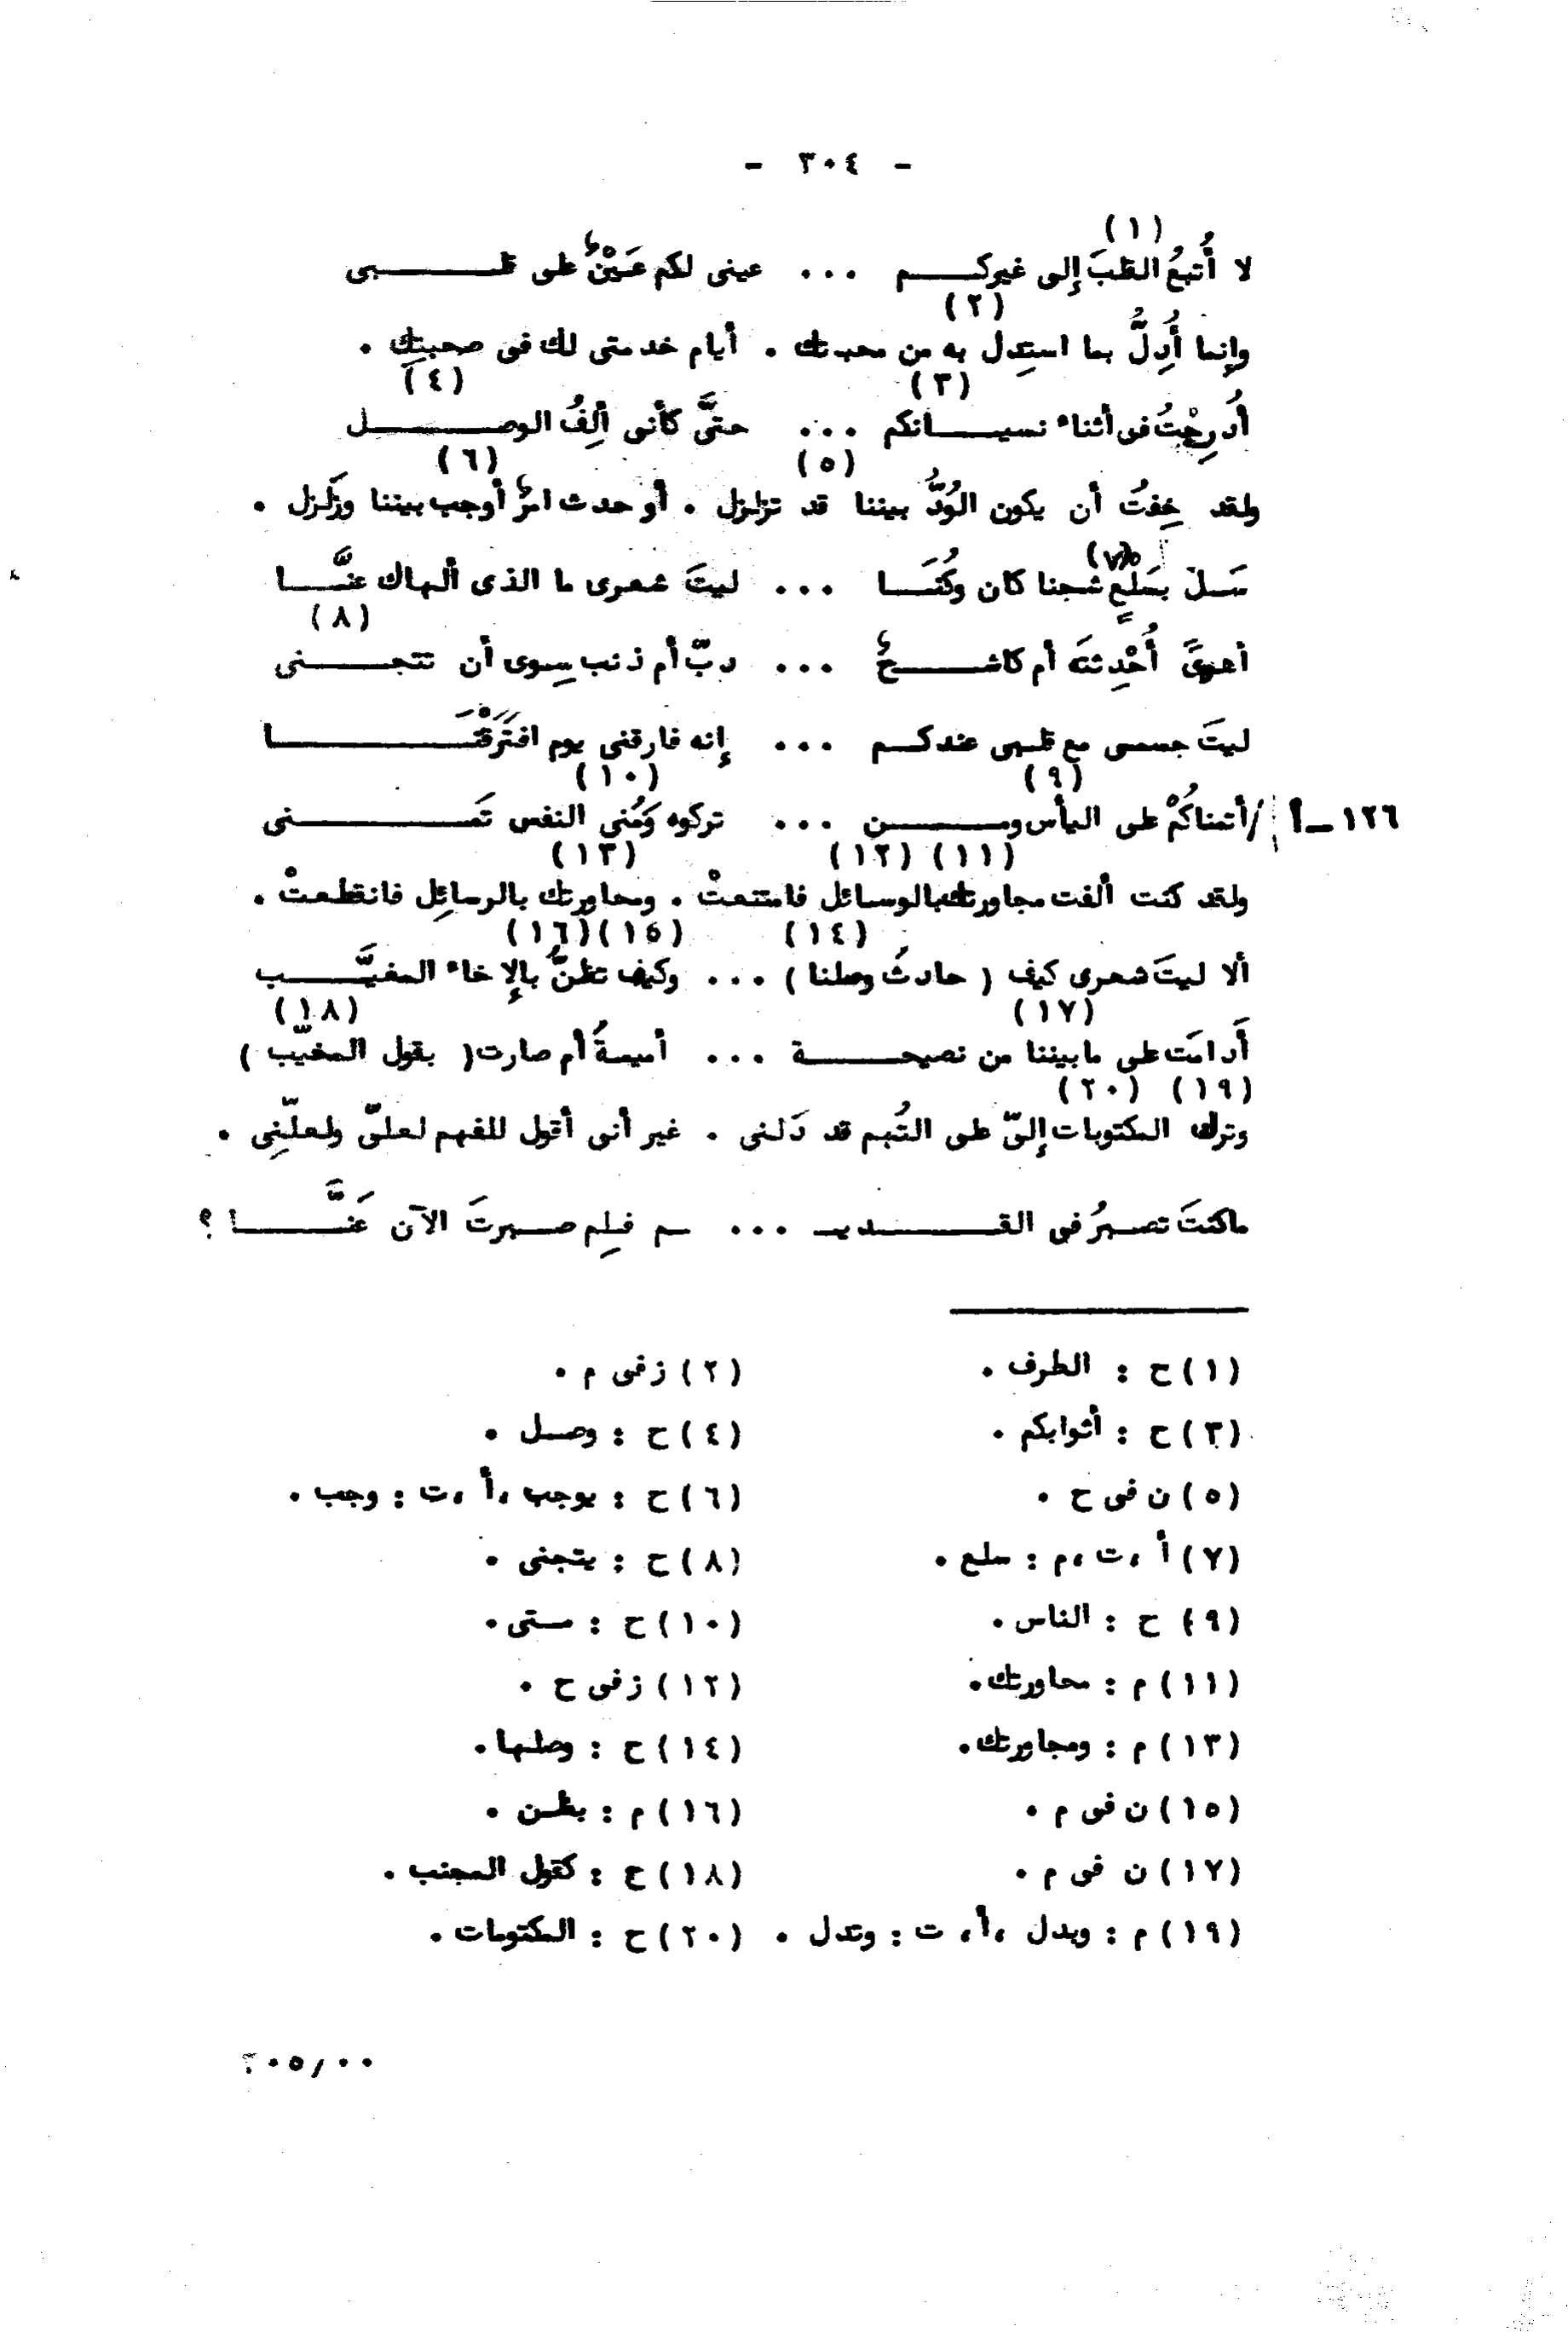 - ٣٠٤ -
(١)
لا أُتبعُ القلبَ إلى غيركم ... عينى لكم عَيْنٌ على قلبى
(٢)
وإنما أُدِلُّ بما استدل به من محبتك . أيام خدمتى لك فى صحبتِك .
(٣) (٤)
أُدرِجْتُ فى أثناء نسيانكم ... حتَّى كأنى ألِفُ الوصل
(٥) (٦)
ولقد خِفتُ أن يكون الوُدُّ بيننا قد تزلزل . أو حدث امرٌ أوجب بيننا وزَلزل .
(٧)
سَل بسَلعٍ شجنا كان وكُنَا ... ليتَ شعرى ما الذى ألهاك عنَّا
(٨)
أهوىً أُحْدِثتَه أم كاشحٌ ... دبّ أم ذنب سِوى أن تتجنى
ليتَ جسمى مع قلبى عندكم ... إنه فارقنى يوم افتَرَقْنَا
(٩) (١٠)
١٢٦ــأ /أتمناكُمْ على اليأس ومن ... تركوه وَمُنى النفس تَمنى
(١١) (١٢) (١٣)
ولقد كنت ألفت مجاورتك بالوسائل فامتنعتْ . ومحاورتك بالرسائِل فانقطعتْ .
(١٤) (١٥) (١٦)
ألا ليتَ شعرى كيف ( حادثُ وصلنا ) ... وكيف تظنُّ بالإِخاء المغيَّب
(١٧) (١٨)
أَدامَت على مابيننا من نصيحة ... أميمةُ أم صارت ( بقول المخيّب )
(١٩) (٢٠)
وترك المكتوبات إلىّ على التُهم قد دَلنى . غير أنى أقول للفهم لعلىّ ولعلّنِى .
ماكنتَ تصبرُ فى القديـ ... ـم فلِم صبرتَ الآن عَنَّا ؟
(١) ح : الطرف . (٢) ز فى م .
(٣) ح : أثوابكم . (٤) ح : وصل .
(٥) ن فى ح . (٦) ح : يوجب ، أ ، ت : وجب .
(٧) أ ، ت ، م : سلع . (٨) ح : يتجنى .
(٩) ح : الناس . (١٠) ح : ستى .
(١١) م : محاورتك . (١٢) ز فى ح .
(١٣) م : ومجاورتك . (١٤) ح : وصلها .
(١٥) ن فى م . (١٦) م : بظن .
(١٧) ن فى م . (١٨) ح : كقول المجنب .
(١٩) م : وبدل ، أ ، ت : وتدل . (٢٠) ح : المكتومات .
٣٠٥/٠٠